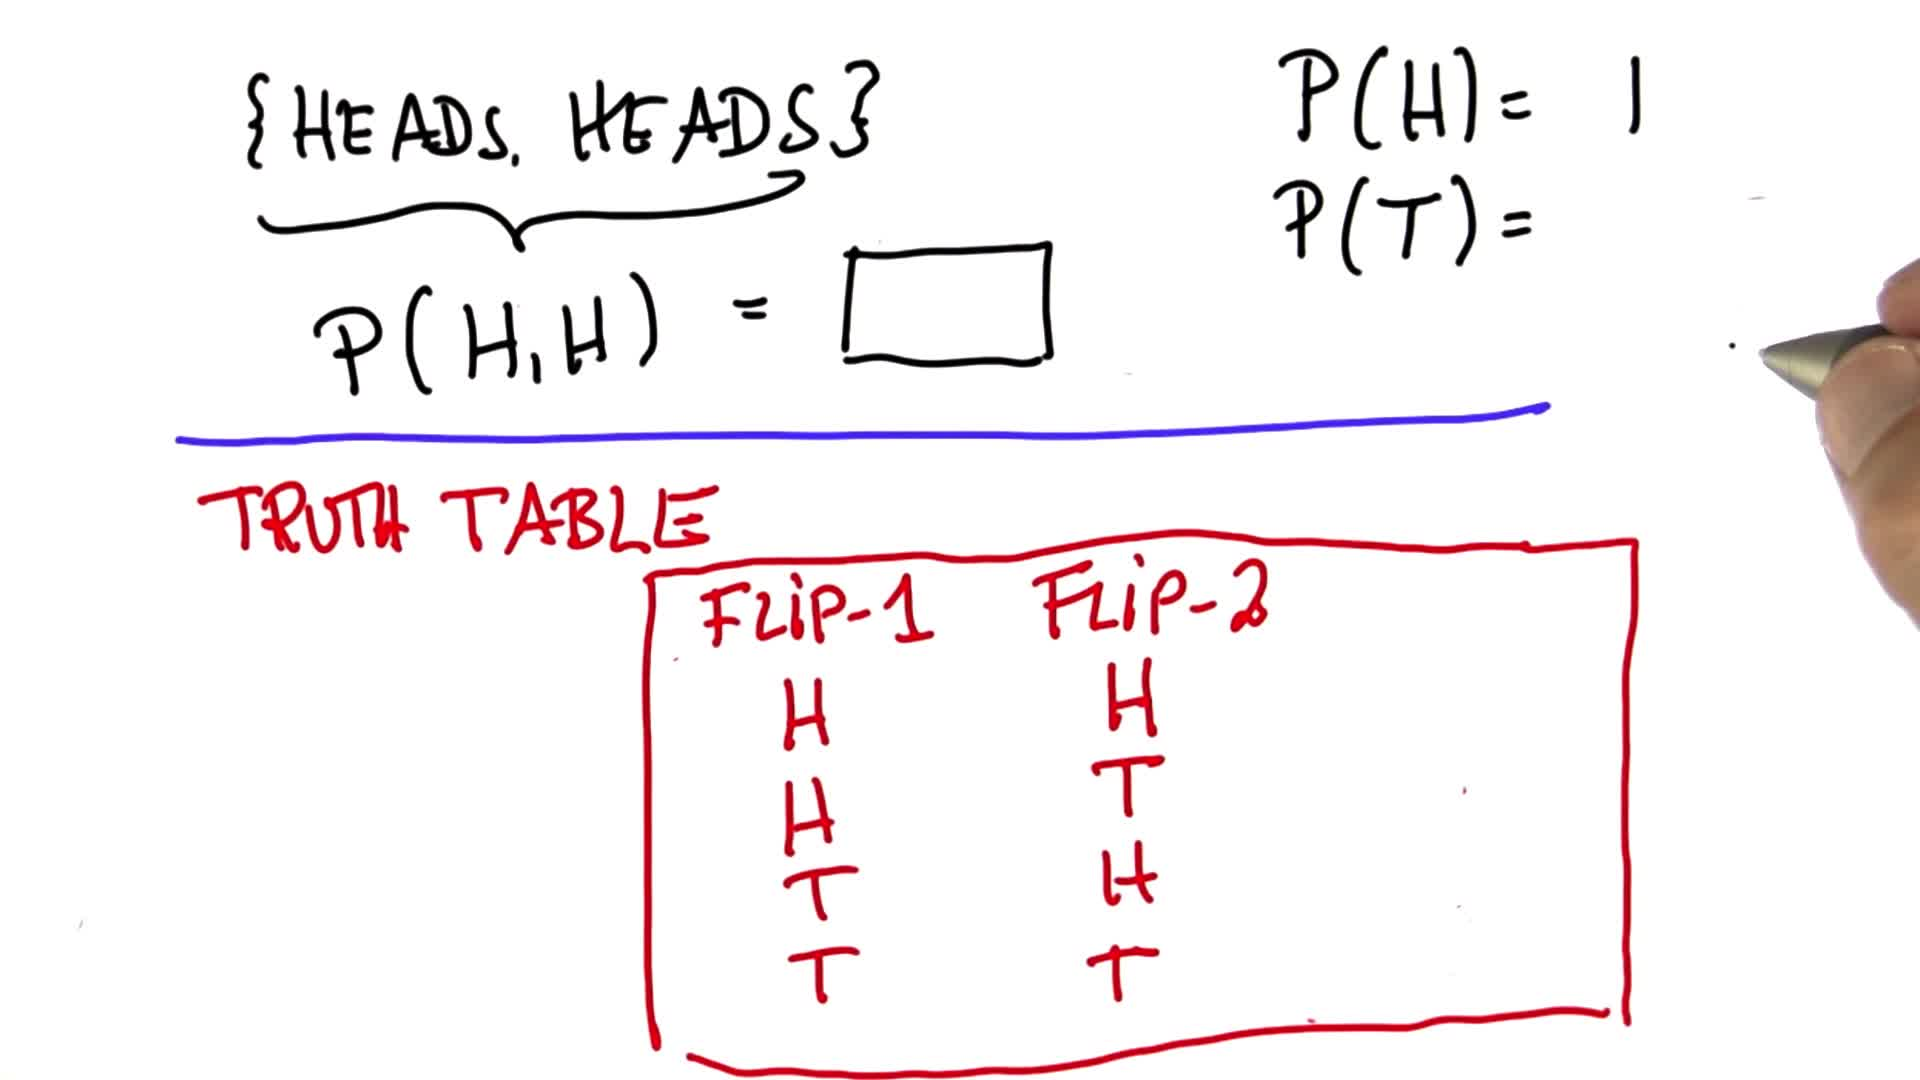 {HEADS, HEADS}
P(H) = 1
P(T) =
P(H,H) =
TRUTH TABLE
FLiP-1 FLiP-2
H H
H T
T H
T T